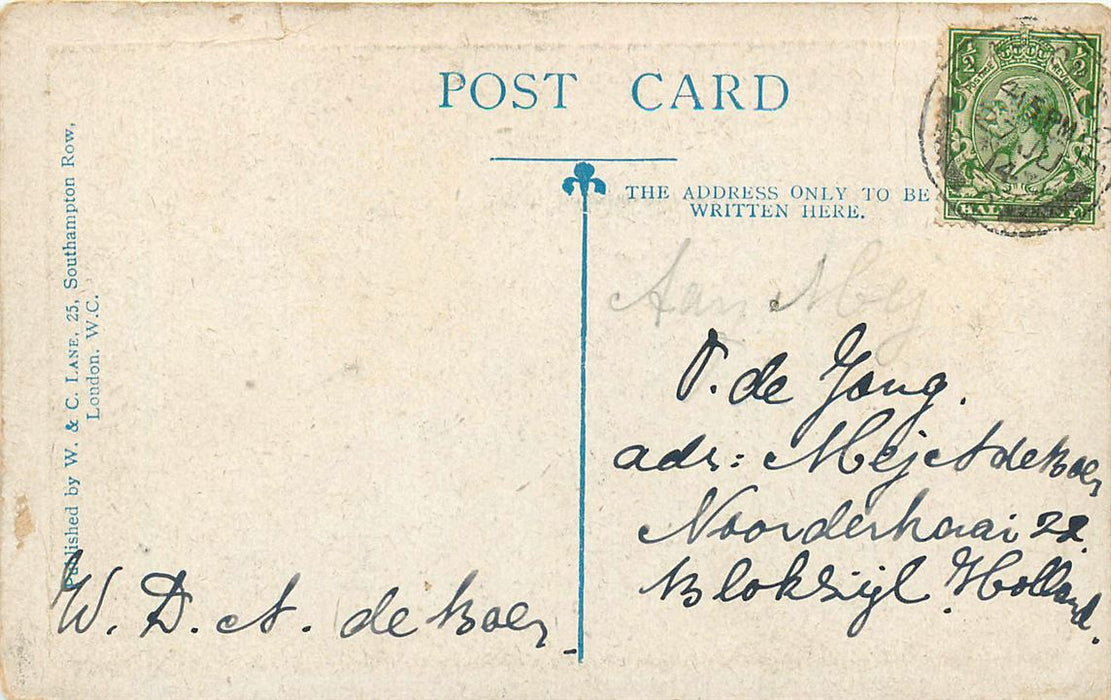 POST CARD
THE ADDRESS ONLY TO BE
WRITTEN HERE.
½ ½
POSTAGE REVENUE
4 15 PM
JU
14
Published by W. & C. LANE, 25, Southampton Row,
London. W.C.
Aan Mej
T. de Jong.
adr: Mej A de Boer
Noorderkaai 22.
Blokzijl Holland.
W. D. A. de Boer